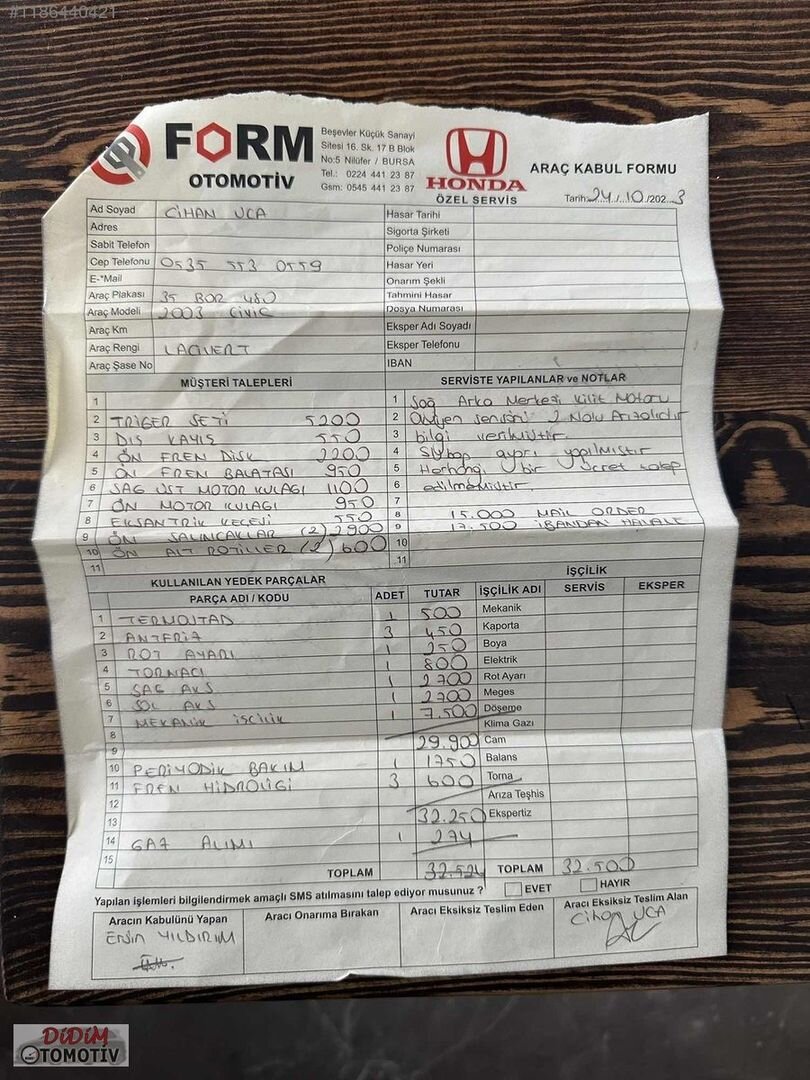 #1186440421
FORM
OTOMOTİV
Beşevler Küçük Sanayi
Sitesi 16. Sk. 17 B Blok
No:5 Nilüfer / BURSA
Tel.: 0224 441 23 87
Gsm: 0545 441 23 87
HONDA
ÖZEL SERVİS
ARAÇ KABUL FORMU
Tarih: 24/10/2023
Ad Soyad CİHAN UCA Hasar Tarihi
Adres Sigorta Şirketi
Sabit Telefon Poliçe Numarası
Cep Telefonu 0535 553 0559 Hasar Yeri
E-*Mail Onarım Şekli
Araç Plakası 35 BOR 480 Tahmini Hasar
Araç Modeli 2003 CİVİC Dosya Numarası
Araç Km Eksper Adı Soyadı
Araç Rengi LACİVERT Eksper Telefonu
Araç Şase No IBAN
MÜŞTERİ TALEPLERİ SERVİSTE YAPILANLAR ve NOTLAR
1 1 Sağ Arka Merkezi Kilit Motoru
2 TRİGER SETİ 5200 2 Oksijen sensörü 2 Nolu Arızalıdır
3 DIŞ KAYIŞ 550 3 bilgi verilmiştir.
4 ÖN FREN DİSK 2200 4 Sibop ayarı yapılmıştır
5 ÖN FREN BALATASI 950 5 Herhangi bir ücret talep
6 SAĞ ÜST MOTOR KULAĞI 1100 6 edilmemiştir.
7 ÖN MOTOR KULAĞI 950 7
8 EKSANTRİK KEÇESİ 550 8 15.000 MAIL ORDER
9 ÖN SALINCAKLAR (2) 2900 9 17.500 İBANDAN HAVALE
10 ÖN ALT ROTİLLER (2) 600 10
11 11
KULLANILAN YEDEK PARÇALAR İŞÇİLİK
PARÇA ADI / KODU ADET TUTAR İŞÇİLİK ADI SERVİS EKSPER
1 TERMOSTAD 1 500 Mekanik
2 ANTFRİZ 3 450 Kaporta
3 ROT AYARI 1 250 Boya
4 TORNACI 1 800 Elektrik
5 SAĞ AKS 1 2700 Rot Ayarı
6 SOL AKS 1 2700 Meges
7 MEKANİK İŞÇİLİK 1 7.500 Döşeme
8 Klima Gazı
9 29.900 Cam
10 PERİYODİK BAKIM 1 1750 Balans
11 FREN HİDROLİĞİ 3 600 Torna
12 Arıza Teşhis
13 32.250 Ekspertiz
14 GAZ ALIMI 1 274
15
TOPLAM 32.524 TOPLAM 32.500
Yapılan işlemleri bilgilendirmek amaçlı SMS atılmasını talep ediyor musunuz ? EVET HAYIR
Aracın Kabulünü Yapan Aracı Onarıma Bırakan Aracı Eksiksiz Teslim Eden Aracı Eksiksiz Teslim Alan
ERSİN YILDIRIM Cihan UCA
DİDİM
OTOMOTİV